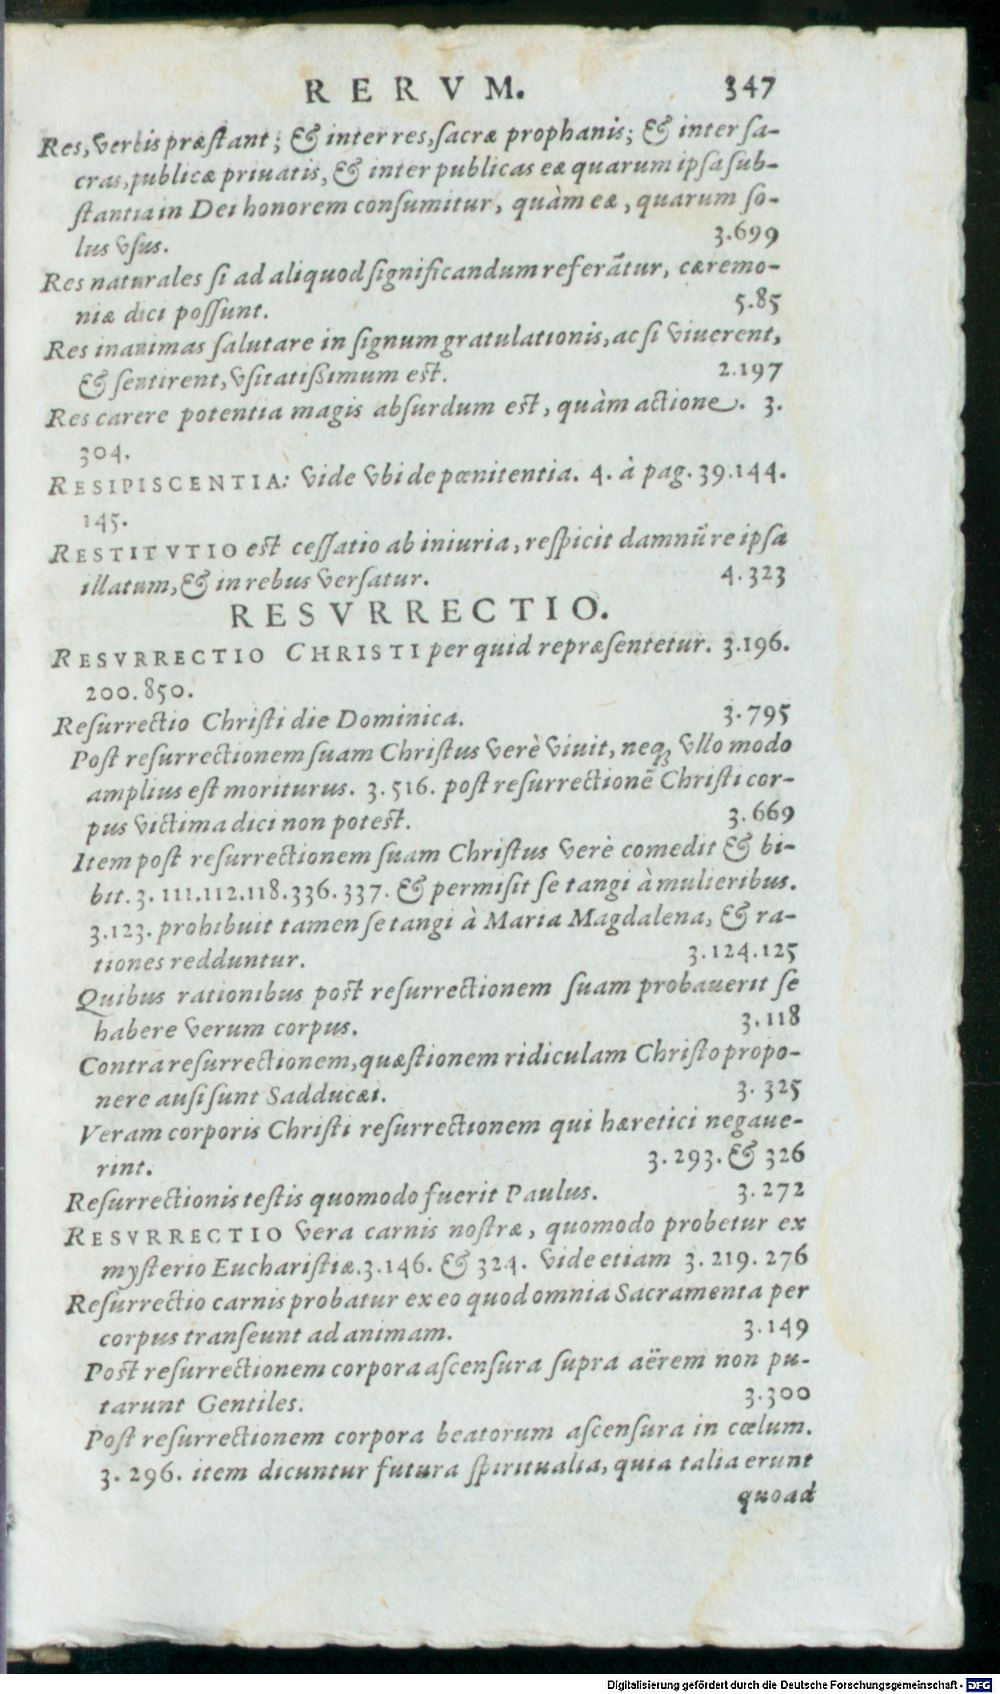 RERVM. 347
Res, verbis præstant; & inter res, sacræ prophanis; & inter sa-
cras, publicæ priuatis, & inter publicas eæ quarum ipsa sub-
stantia in Dei honorem consumitur, quàm eæ, quarum so-
lus vsus. 3.699
Res naturales si ad aliquod significandum referãtur, cæremo-
niæ dici possunt. 5.85
Res inanimas salutare in signum gratulationis, ac si viuerent,
& sentirent, vsitatissimum est. 2.197
Res carere potentia magis absurdum est, quàm actione. 3.
304.
RESIPISCENTIA: vide vbi de pœnitentia. 4. à pag. 39.144.
145.
RESTITVTIO est cessatio ab iniuria, respicit damnũ re ipsa
illatum, & in rebus versatur. 4.323
RESVRRECTIO.
RESVRRECTIO CHRISTI per quid repræsentetur. 3.196.
200.850.
Resurrectio Christi die Dominica. 3.795
Post resurrectionem suam Christus verè viuit, neq; vllo modo
amplius est moriturus. 3.516. post resurrectionẽ Christi cor-
pus victima dici non potest. 3.669
Item post resurrectionem suam Christus verè comedit & bi-
bit. 3.111.112.118.336.337. & permisit se tangi à mulieribus.
3.123. prohibuit tamen se tangi à Maria Magdalena, & ra-
tiones redduntur. 3.124.125
Quibus rationibus post resurrectionem suam probauerit se
habere verum corpus. 3.118
Contra resurrectionem, quæstionem ridiculam Christo propo-
nere ausi sunt Sadducæi. 3.325
Veram corporis Christi resurrectionem qui hæretici negaue-
rint. 3.293. & 326
Resurrectionis testis quomodo fuerit Paulus. 3.272
RESVRRECTIO vera carnis nostræ, quomodo probetur ex
mysterio Eucharistiæ. 3.146. & 324. vide etiam 3.219.276
Resurrectio carnis probatur ex eo quod omnia Sacramenta per
corpus transeunt ad animam. 3.149
Post resurrectionem corpora ascensura supra aërem non pu-
tarunt Gentiles. 3.300
Post resurrectionem corpora beatorum ascensura in cœlum.
3.296. item dicuntur futura spiritualia, quia talia erunt
quoad
Digitalisierung gefördert durch die Deutsche Forschungsgemeinschaft - DFG